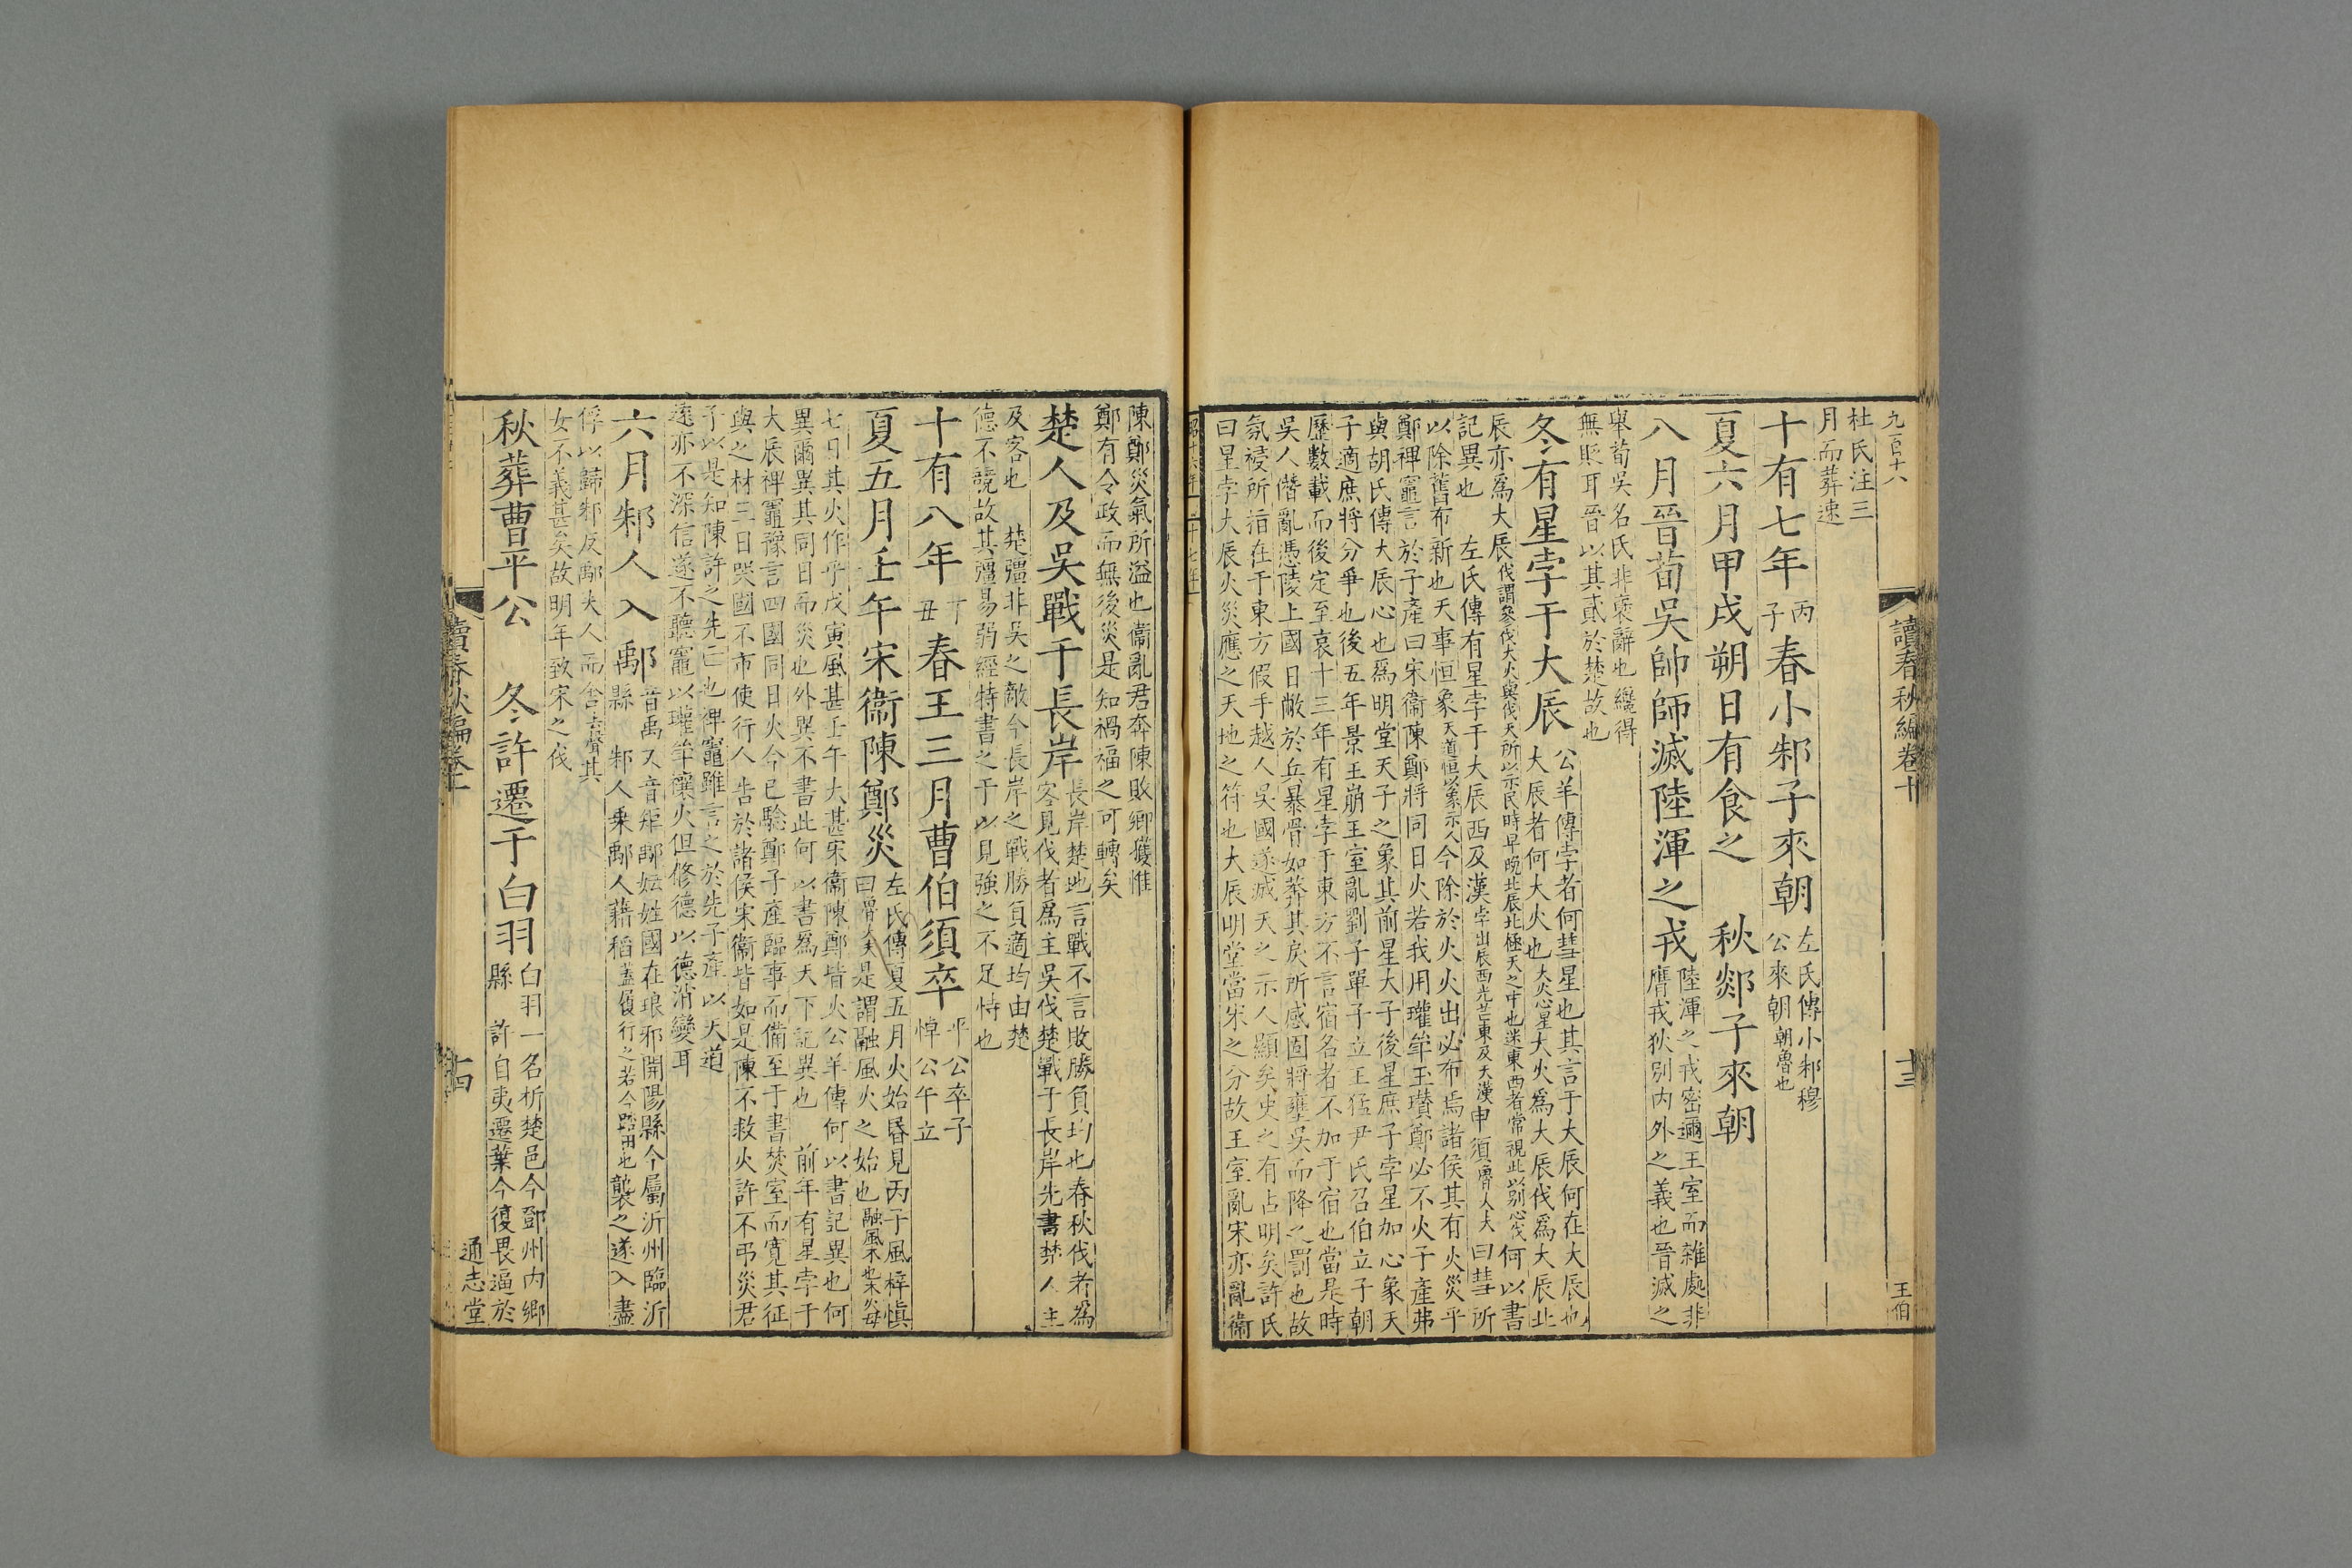 九百十八
讀春秋編卷十
十三
王伯
杜氏注三
月而葬速
十有七年
丙
子
春小邾子來朝
左氏傳小邾穆
公來朝朝魯也
夏六月甲戌朔日有食之 秋郯子來朝
八月晉荀吳帥師滅陸渾之戎
陸渾之戎密邇王室而雜處非
膺戎狄別内外之義也晉滅之
舉荀吳名氏非褒辭也纔得
無貶耳晉以其貳於楚故也
冬有星孛于大辰
公羊傳孛者何彗星也其言于大辰何在大辰也
大辰者何大火也大火心星大火爲大辰伐爲大辰北
辰亦爲大辰伐謂參伐大火與伐天所以示民時早晚北辰北極天之中也迷東西者常視此以別心伐何以書
記異也 左氏傳有星孛于大辰西及漢孛出辰西光芒東及天漢申須魯人大夫曰彗所
以除舊布新也天事恒象天道恒以象示人今除於火火出必布焉諸侯其有火災乎
鄭裨竈言於子產曰宋衞陳鄭將同日火若我用瓘斝玉瓚鄭必不火子產弗
與胡氏傳大辰心也爲明堂天子之象其前星大子後星庶子孛星加心象天
子適庶將分爭也後五年景王崩王室亂劉子單子立王猛尹氏召伯立子朝
歷數載而後定至哀十三年有星孛于東方不言宿名者不加于宿也當是時
吳人僭亂憑陵上國日敝於兵暴骨如莽其戾所感固將壅吳而降之罰也故
氛祲所指在于東方假手越人吳國遂滅天之示人顯矣史之有占明矣許氏
曰星孛大辰火災應之天地之符也大辰明堂當宋之分故王室亂宋亦亂衞
昭十六年 十七年
陳鄭災氣所溢也衞亂君奔陳敗卿獲惟
鄭有令政而無後災是知禍福之可轉矣
楚人及吳戰于長岸
長岸楚地言戰不言敗勝負均也春秋伐者爲
客見伐者爲主吳伐楚戰于長岸先書楚人主
及客也 楚彊非吳之敵今長岸之戰勝負適均由楚
德不競故其彊易弱經特書之于以見強之不足恃也
十有八年
丁
丑
春王三月曹伯須卒
平公卒子
悼公午立
夏五月壬午宋衞陳鄭災
左氏傳夏五月火始昏見丙子風梓愼
曰魯大夫是謂融風火之始也融風木也木火母
七日其火作乎戊寅風甚壬午大甚宋衞陳鄭皆火公羊傳何以書記異也何
異爾異其同日而災也外異不書此何以書爲天下記異也 前年有星孛于
大辰裨竈豫言四國同日火今已驗鄭子產臨事而備至于書焚室而寬其征
與之材三日哭國不市使行人告於諸侯宋衞皆如是陳不救火許不弔災君
子以是知陳許之先亡也裨竈雖言之於先子產以天道
遠亦不深信遂不聽竈以瓘斝禳火但修德以德消變耳
六月邾人入鄅
音禹又音矩鄅妘姓國在琅邪開陽縣今屬沂州臨沂
縣 邾人乘鄅人藉稻蓋履行之若今踏田也襲之遂入盡
俘以歸邾反鄅夫人而舍去聲其
女不義甚矣故明年致宋之伐
秋葬曹平公 冬許遷于白羽
白羽一名析楚邑今鄧州内鄉
縣 許自夷遷葉今復畏逼於
讀春秋編卷十
十四
通志堂